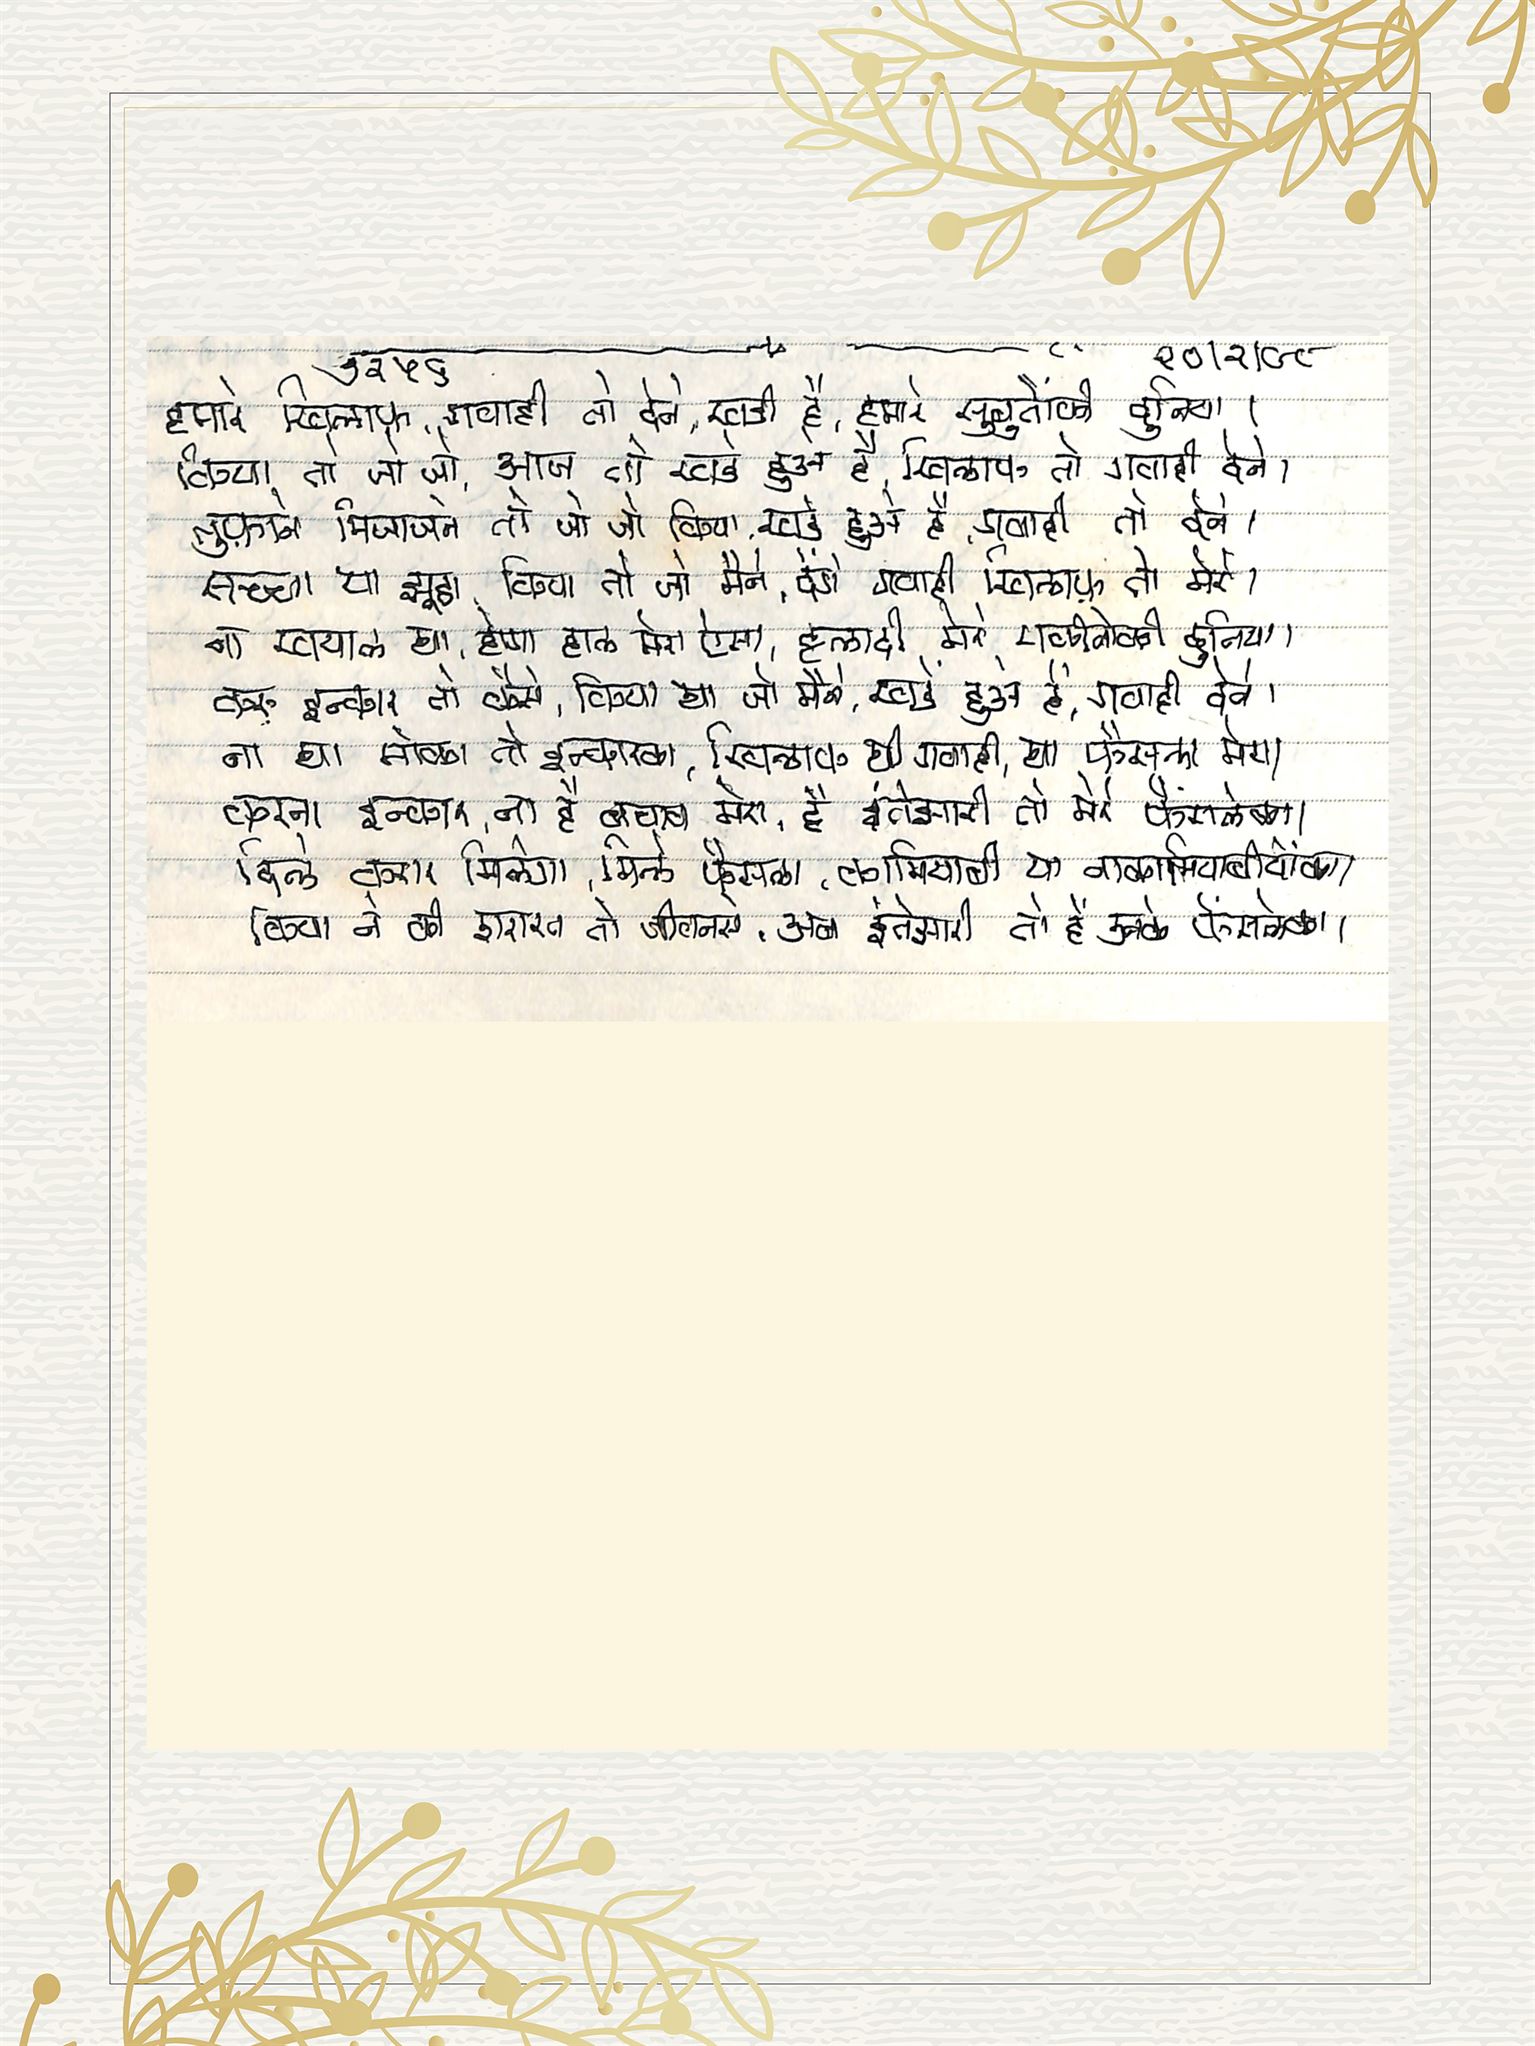 ३२५६ २०/२/८९
हमारे खिलाफ़, गवाही तो देने, खडी है, हमारे सुबुतोंकी दुनिया।
किया तो जो जो, आज तो खडे हुअे है, खिलाफ तो गवाही देने।
तुफ़ाने मिजाजने तो जो जो किया, खडे हुअे है, गवाही तो देने।
सच्चा या झूठा, किया तो जो मैने, देंगे गवाही खिलाफ़ तो मेरे।
ना खयाल था, होगा हाल मेरा ऐसा, हलादी मेरे, दुनिया।
करु इन्कार तो कैसे, किया था जो मैने, खडे हुअे है, गवाही देने।
ना था मोका तो इन्कारका, खिलाफ थी गवाही, था फैसला मेरा।
करना इन्कार, ना है बचाव मेरा, है इंतेझारी तो मेरे फैंसलेका।
दिले करार मिलेगा, मिले फैसला, कामियाबी या नाकामियाबीयोंका।
किया ने की शरारत तो जीवनसे, अब इंतेझारी तो है उनके फेंसलेका।